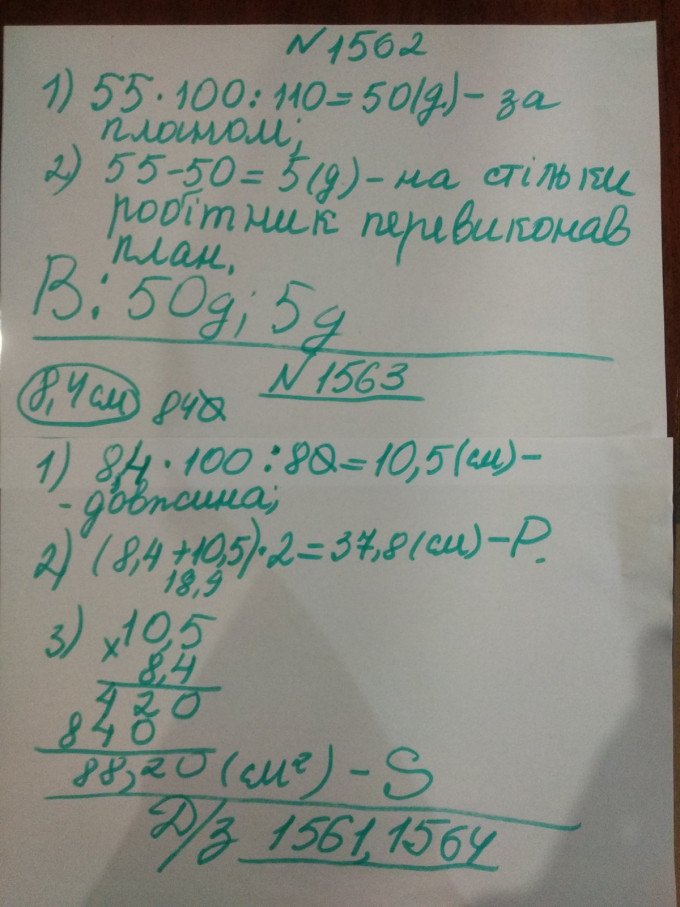 N1562
1) 55·100:110=50(д)- за
планом;
2) 55-50=5(д)-на стільки
робітник перевиконав
план.
В: 50д; 5д
N1563
8,4см 840
1) 8,4·100:80=10,5(см)-
- довжина;
2) (8,4+10,5)·2=37,8(см)-P.
18,9
3) 10,5
x 8,4
420
840
88,20(см²) - S
Д/з 1561,1564